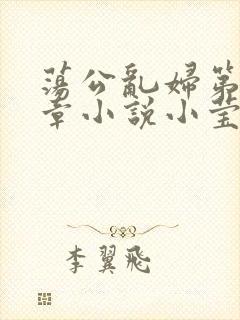 蕩公亂婦第
章小說小莹
李翼飛